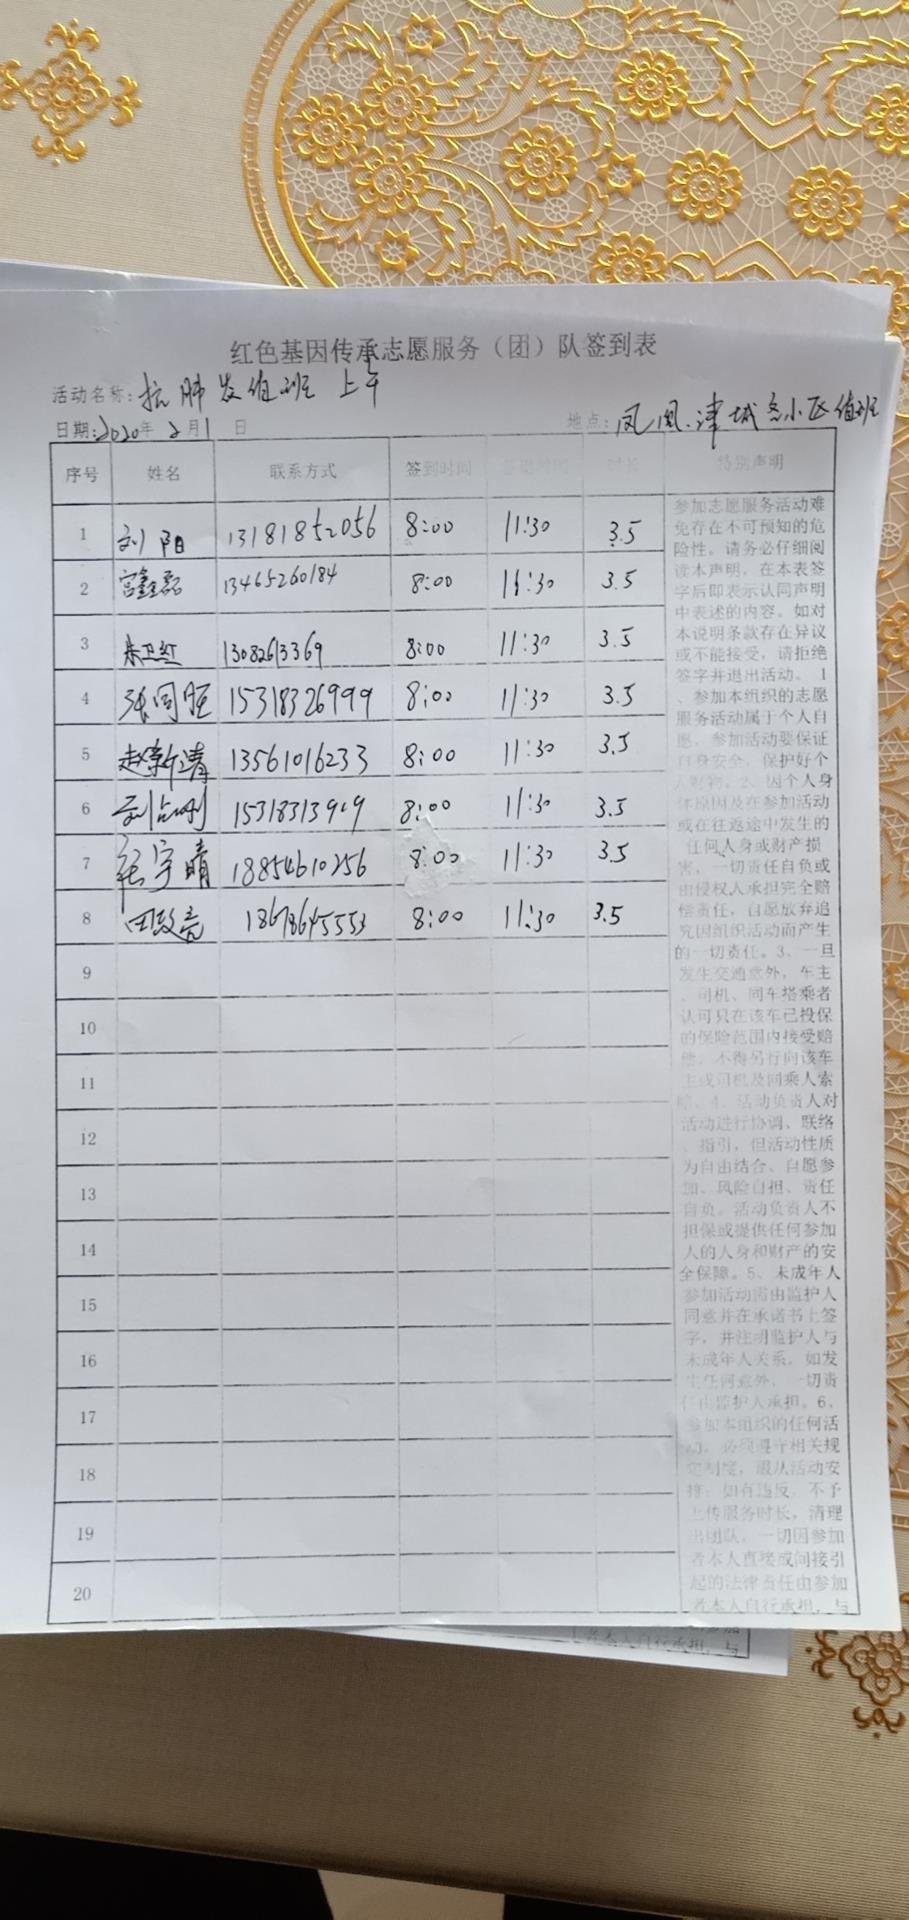 红色基因传承志愿服务（团）队签到表
活动名称：抗肺炎值班 上午
日期：2020年 2月1 日 地点：凤凰津城 小区值班
序号 姓名 联系方式 签到时间 签退时间 时长 特别声明
1 刘阳 13181852056 8:00 11:30 3.5
2 宫鑫磊 13465260184 8:00 11:30 3.5
3 朱卫红 13082613369 8:00 11:30 3.5
4 张同旺 15318326999 8:00 11:30 3.5
5 赵新清 13561016233 8:00 11:30 3.5
6 15318313909 8:00 11:30 3.5
7 任宇晴 18854610256 8:00 11:30 3.5
8 田政亮 18678645553 8:00 11:30 3.5
9
10
11
12
13
14
15
16
17
18
19
20
参加志愿服务活动难
免存在不可预知的危
险性。请务必仔细阅
读本声明，在本表签
字后即表示认同声明
中表述的内容。如对
本说明条款存在异议
或不能接受，请拒绝
签字并退出活动。1
、参加本组织的志愿
服务活动属于个人自
愿，参加活动要保证
自身安全，保护好个
人财物。2、因个人身
体原因及在参加活动
或在往返途中发生的
任何人身或财产损
害，一切责任自负或
由侵权人承担完全赔
偿责任，自愿放弃追
究因组织活动而产生
的一切责任。3、一旦
发生交通意外，车主
、司机、同车搭乘者
认可只在该车已投保
的保险范围内接受赔
偿，不得另行向该车
主或司机及同乘人索
赔。4、活动负责人对
活动进行协调、联络
、指引，但活动性质
为自由结合、自愿参
加、风险自担、责任
自负。活动负责人不
担保或提供任何参加
人的人身和财产的安
全保障。5、未成年人
参加活动需由监护人
同意并在承诺书上签
字，并注明监护人与
未成年人关系，如发
生任何意外，一切责
任由监护人承担。6、
参加本组织的任何活
动，必须遵守相关规
定制度，服从活动安
排；如有违反，不予
上传服务时长，清理
出团队，一切因参加
者本人直接或间接引
起的法律责任由参加
者本人自行承担，与
者本人自行承担，与